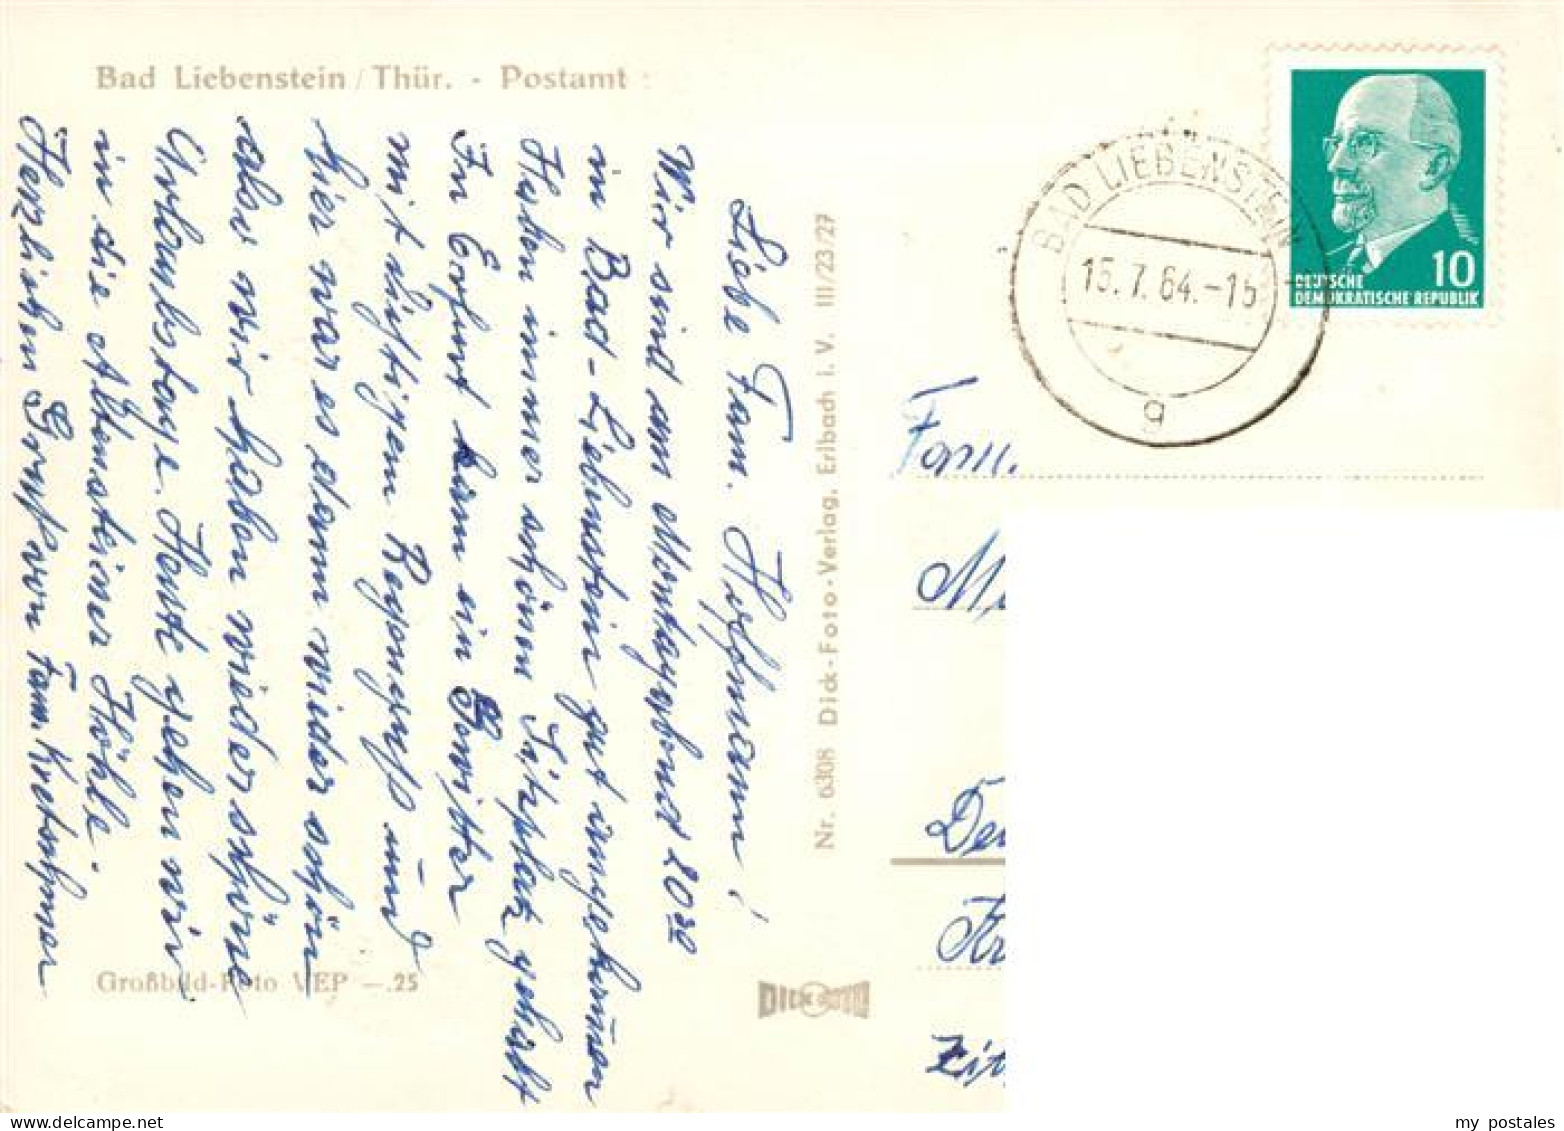 Bad Liebenstein / Thür. - Postamt
Liebe Fam. Hoffmann!
Wir sind am Montagabend 20 30
in Bad-Liebenstein gut angekommen
Haben immer schönen Sitzplatz gehabt
In Erfurt kam ein Gewitter
mit kräftigem Regenguß und
hier war es dann wieder schön
aber wir haben wieder schöne
Urlaubstage. Heute gehen wir
in die Altensteiner Höhle.
Herzlichen Gruß von Fam. Kretschmer
Großbild-Foto VEP -.25
Nr. 6308 Dick-Foto-Verlag, Erlbach i. V. III/23/27
DICK FOTO
BAD LIEBENSTEIN
15.7.64.-15
g
10
DEUTSCHE
DEMOKRATISCHE REPUBLIK
Fam.
my postales